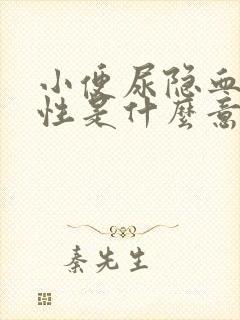 小便尿隐血
性是什麽意
秦先生